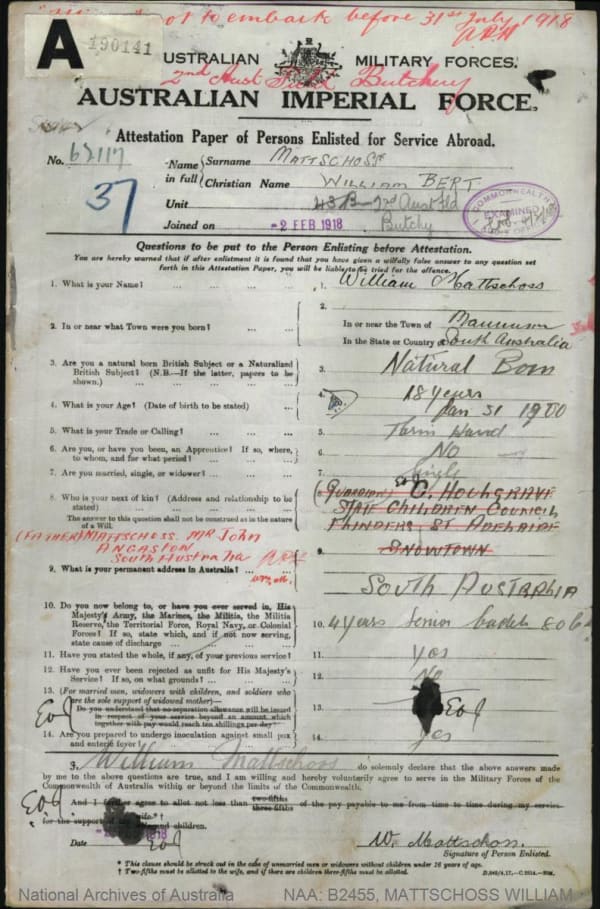 not to embark before 31st July 1918
A
190141
AUSTRALIAN MILITARY FORCES.
2nd Aust Field Butchery
AUSTRALIAN IMPERIAL FORCE.
Attestation Paper of Persons Enlisted for Service Abroad.
No. 62117
37
Name in full { Surname MATTSCHOSS
Christian Name WILLIAM BERT
Unit 2nd Aust Fld
Butchy
Joined on -2 FEB 1918
COMMONWEALTH
EXAMINED
Questions to be put to the Person Enlisting before Attestation.
You are hereby warned that if after enlistment it is found that you have given a wilfully false answer to any question set
forth in this Attestation Paper, you will be liable to be tried for the offence.
1. What is your Name? ... ... 1. William Mattschoss
2. In or near what Town were you born? ... ... 2. In or near the Town of Mannum
In the State or Country of South Australia
3. Are you a natural born British Subject or a Naturalized
British Subject? (N.B.—If the latter, papers to be
shown.) 3. Natural Born
4. What is your Age? (Date of birth to be stated) ... 4. 18 years
Jan 31 1900
5. What is your Trade or Calling? ... ... 5. Farm Hand
6. Are you, or have you been, an Apprentice? If so, where,
to whom, and for what period? ... 6. No
7. Are you married, single, or widower? ... ... 7. Single
8. Who is your next of kin? (Address and relationship to be
stated) 8. (Guardian)
STATE CHILDREN COUNCIL
FLINDERS ST ADELAIDE
The answer to this question shall not be construed as in the nature
of a Will.
(FATHER) MATTSCHOSS. MR John
ANGASTON
South Australia
9. What is your permanent address in Australia? ... 9. SNOWTOWN
SOUTH AUSTRALIA
10. Do you now belong to, or have you ever served in, His
Majesty's Army, the Marines, the Militia, the Militia
Reserve, the Territorial Force, Royal Navy, or Colonial
Forces? If so, state which, and if not now serving,
state cause of discharge 10. 4 years Senior Cadets 80b
11. Have you stated the whole, if any, of your previous service? 11. Yes
12. Have you ever been rejected as unfit for His Majesty's
Service? If so, on what grounds? 12. No
13. (For married men, widowers with children, and soldiers who
are the sole support of widowed mother)—
Do you understand that no separation allowance will be issued
in respect of your service beyond an amount which
together with pay would reach ten shillings per day? 13.
14. Are you prepared to undergo inoculation against small pox
and enteric fever? 14. Yes
I, William Mattschoss do solemnly declare that the above answers made
by me to the above questions are true, and I am willing and hereby voluntarily agree to serve in the Military Forces of the
Commonwealth of Australia within or beyond the limits of the Commonwealth.
And I further agree to allot not less than two-fifths three-fifths of the pay payable to me from time to time during my service
for the support of my wife.*† and children.
Date 1918
W. Mattschoss.
Signature of Person Enlisted.
* This clause should be struck out in the case of unmarried men or widowers without children under 16 years of age.
† Two-fifths must be allotted to the wife, and if there are children three-fifths must be allotted.
National Archives of Australia NAA: B2455, MATTSCHOSS WILLIAM